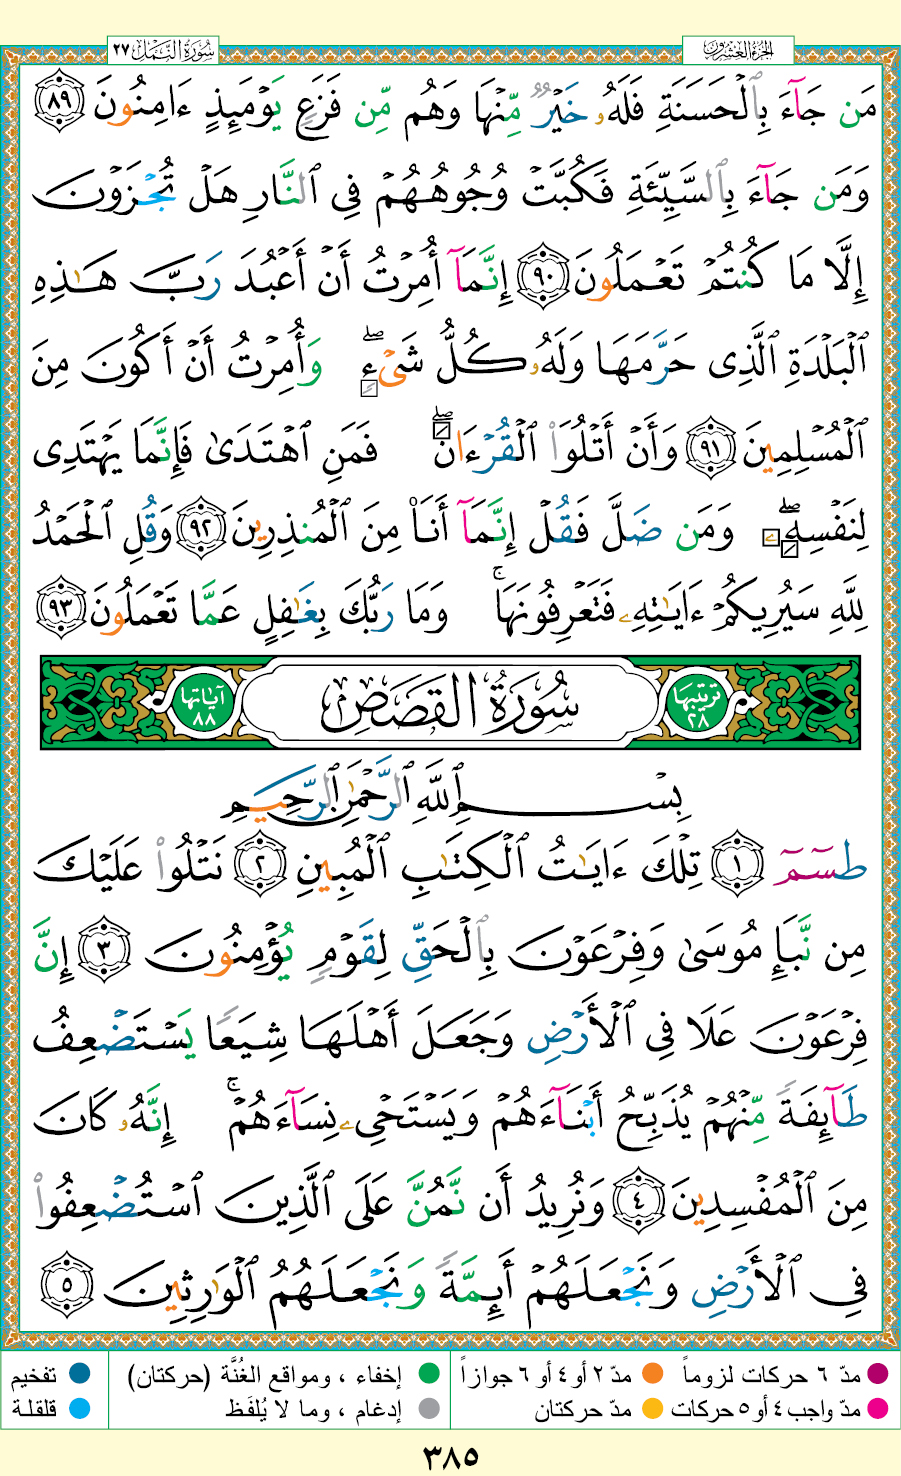 سُورَةُ النَّمْلِ ٢٧
الجُزْءُ العِشْرُونَ
مَن جَآءَ بِٱلْحَسَنَةِ فَلَهُۥ خَيْرٌ مِّنْهَا وَهُم مِّن فَزَعٍ يَوْمَئِذٍ ءَامِنُونَ ٨٩
وَمَن جَآءَ بِٱلسَّيِّئَةِ فَكُبَّتْ وُجُوهُهُمْ فِى ٱلنَّارِ هَلْ تُجْزَوْنَ
إِلَّا مَا كُنتُمْ تَعْمَلُونَ ٩٠ إِنَّمَآ أُمِرْتُ أَنْ أَعْبُدَ رَبَّ هَٰذِهِ
ٱلْبَلْدَةِ ٱلَّذِى حَرَّمَهَا وَلَهُۥ كُلُّ شَىْءٍ ۖ وَأُمِرْتُ أَنْ أَكُونَ مِنَ
ٱلْمُسْلِمِينَ ٩١ وَأَنْ أَتْلُوَا۟ ٱلْقُرْءَانَ ۖ فَمَنِ ٱهْتَدَىٰ فَإِنَّمَا يَهْتَدِى
لِنَفْسِهِۦ ۖ وَمَن ضَلَّ فَقُلْ إِنَّمَآ أَنَا۠ مِنَ ٱلْمُنذِرِينَ ٩٢ وَقُلِ ٱلْحَمْدُ
لِلَّهِ سَيُرِيكُمْ ءَايَٰتِهِۦ فَتَعْرِفُونَهَا ۚ وَمَا رَبُّكَ بِغَٰفِلٍ عَمَّا تَعْمَلُونَ ٩٣
ترتيبها ٢٨ سُورَةُ القَصَصِ آياتها ٨٨
بِسْمِ ٱللَّهِ ٱلرَّحْمَٰنِ ٱلرَّحِيمِ
طسٓمٓ ١ تِلْكَ ءَايَٰتُ ٱلْكِتَٰبِ ٱلْمُبِينِ ٢ نَتْلُوا۟ عَلَيْكَ
مِن نَّبَإِ مُوسَىٰ وَفِرْعَوْنَ بِٱلْحَقِّ لِقَوْمٍ يُؤْمِنُونَ ٣ إِنَّ
فِرْعَوْنَ عَلَا فِى ٱلْأَرْضِ وَجَعَلَ أَهْلَهَا شِيَعًا يَسْتَضْعِفُ
طَآئِفَةً مِّنْهُمْ يُذَبِّحُ أَبْنَآءَهُمْ وَيَسْتَحْىِۦ نِسَآءَهُمْ ۚ إِنَّهُۥ كَانَ
مِنَ ٱلْمُفْسِدِينَ ٤ وَنُرِيدُ أَن نَّمُنَّ عَلَى ٱلَّذِينَ ٱسْتُضْعِفُوا۟
فِى ٱلْأَرْضِ وَنَجْعَلَهُمْ أَئِمَّةً وَنَجْعَلَهُمُ ٱلْوَٰرِثِينَ ٥
مدّ ٦ حركات لزوماً مدّ ٢ أو ٤ أو ٦ جوازاً إخفاء ، ومواقع الغُنَّة (حركتان) تفخيم
مدّ واجب ٤ أو ٥ حركات مدّ حركتان إدغام ، وما لا يُلفَظ قلقلة
٣٨٥